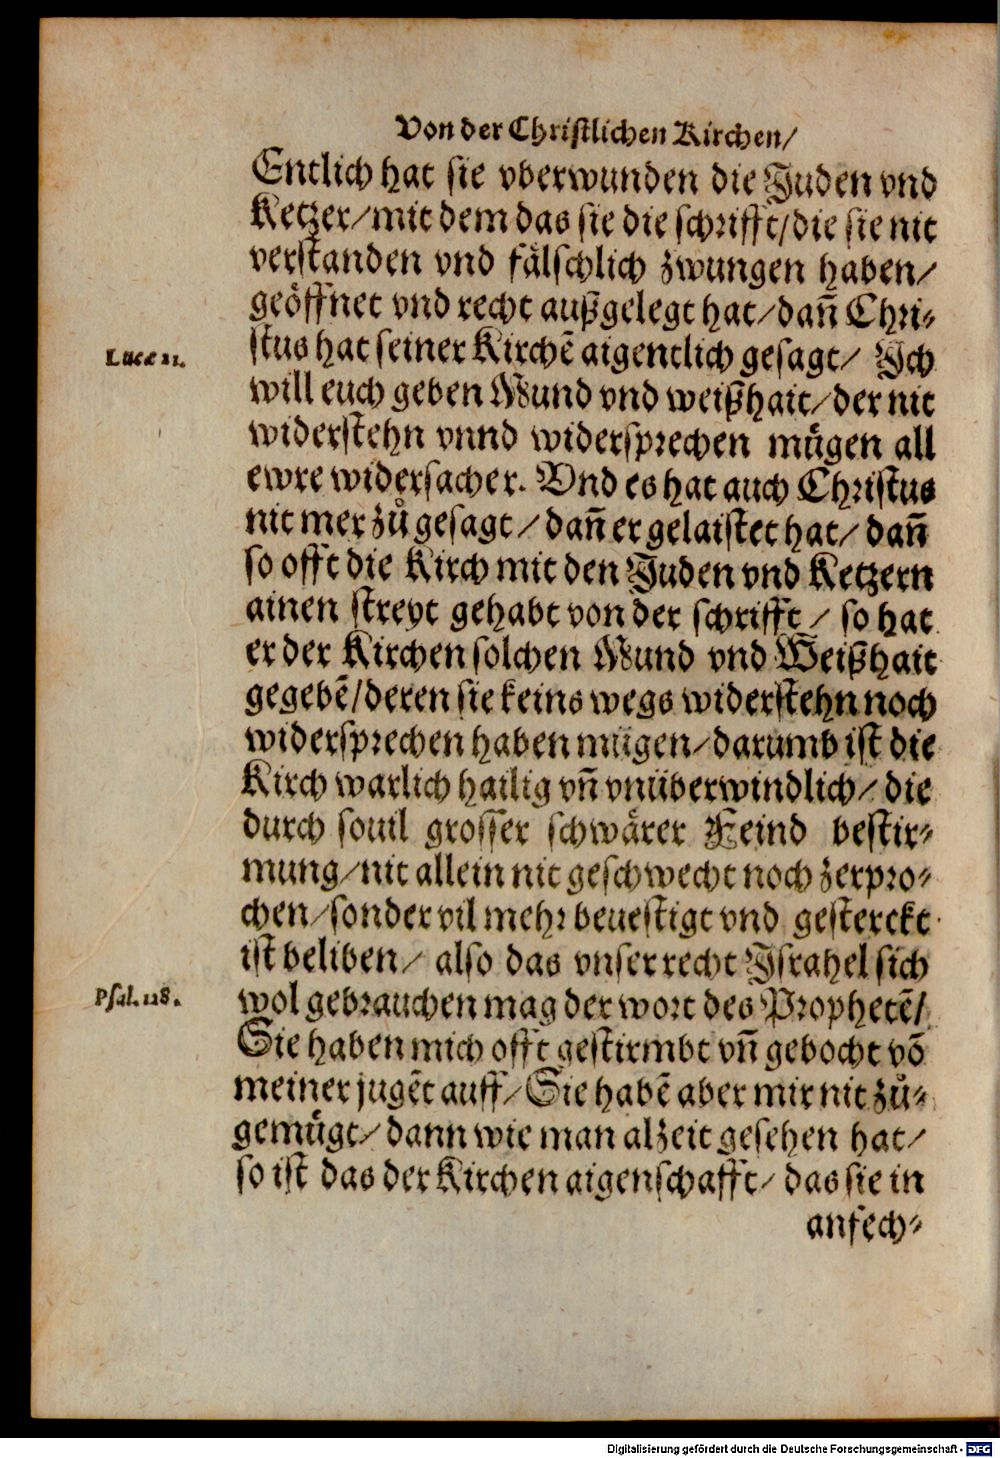 Von der Christlichen Kirchen/
Entlich hat sie vberwunden die Juden vnd
Ketzer/mit dem das sie die schrifft/die sie nit
verstanden vnd fälschlich zwungen haben/
geöffnet vnd recht außgelegt hat/dañ Chri-
stus hat seiner Kirchẽ aigentlich gesagt/ Ich
Lucæ 21.
will euch geben Mund vnd weißhait/der nit
widerstehn vnnd widersprechen mügen all
ewre widersacher. Vnd es hat auch Christus
nit mer zů gesagt/dañ er gelaistet hat/dañ
so offt die Kirch mit den Juden vnd Ketzern
ainen streyt gehabt von der schrifft/ so hat
er der Kirchen solchen Mund vnd Weißhait
gegebẽ/deren sie keins wegs widerstehn noch
widersprechen haben mügen/darumb ist die
Kirch warlich hailig vñ vnüberwindlich/die
durch souil grosser schwärer Feind bestir-
mung/nit allein nit geschwecht noch zerpro-
chen/sonder vil mehr beuestigt vnd gesterckt
ist beliben/ also das vnser recht Israhel sich
wol gebrauchen mag der wort des Prophetẽ/
Psal. 128.
Sie haben mich offt gestirmbt vñ gebocht võ
meiner jugẽt auff/Sie habẽ aber mir nit zů-
gemügt/dann wie man alzeit gesehen hat/
so ist das der Kirchen aigenschafft/das sie in
anfech-
Digitalisierung gefördert durch die Deutsche Forschungsgemeinschaft - DFG